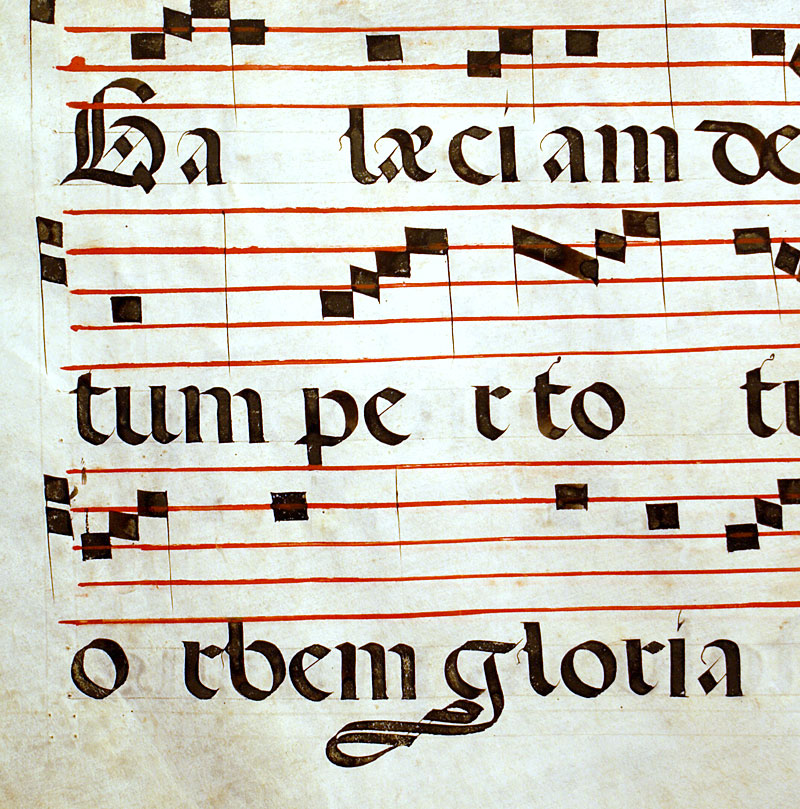 Ga læciam de
tum pe r to tu
o rbem gloria